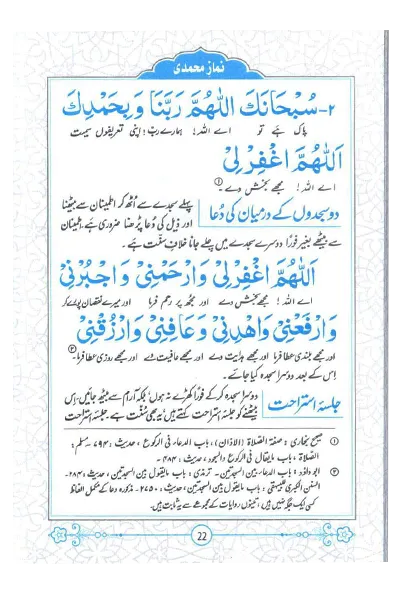 نماز محمدی
۲- سُبْحَانَكَ اللّٰهُمَّ رَبَّنَا وَبِحَمْدِكَ
پاک ہے تو اے اللہ! ہمارے رب! اپنی تعریفوں سمیت
اَللّٰهُمَّ اغْفِرْ لِيْ
اے اللہ! مجھے بخش دے۔ ①
دو سجدوں کے درمیان کی دُعا
پہلے سجدے سے اُٹھ کر اطمینان سے بیٹھنا
اور ذیل کی دُعا پڑھنا ضروری ہے، اطمینان
سے بیٹھے بغیر فوراً دوسرے سجدے میں چلے جانا خلافِ سنّت ہے۔
اَللّٰهُمَّ اغْفِرْ لِيْ وَارْحَمْنِيْ وَاجْبُرْنِيْ
اے اللہ! مجھے بخش دے اور مجھ پر رحم فرما اور میرے نقصان پورے کر
وَارْفَعْنِيْ وَاهْدِنِيْ وَعَافِنِيْ وَارْزُقْنِيْ
اور مجھے بلندی عطا فرما اور مجھے ہدایت دے اور مجھے عافیت دے اور مجھے روزی عطا فرما۔ ②
اس کے بعد دوسرا سجدہ کیا جائے۔
جلسۂ استراحت
دوسرا سجدہ کر کے فوراً کھڑے نہ ہوں بلکہ آرام سے بیٹھ جائیں، اس
بیٹھنے کو جلسۂ استراحت کہتے ہیں، یہ بھی سُنّت ہے۔ جلسۂ استراحت
① صحیح بخاری: صفۃ الصلاۃ (الاذان)، باب الدعاء فی الرکوع، حدیث: ۷۹۴، مسلم:
الصلاۃ، باب مایقال فی الرکوع والسجود، حدیث: ۴۸۴۔
② ابوداؤد: باب الدعاء بین السجدتین۔ ترمذی: باب مایقول بین السجدتین، حدیث: ۲۸۴۔
السنن الکبریٰ للبیہقی: باب مایقول بین السجدتین، حدیث: ۲۷۵۰۔ مذکورہ دعا کے مکمل الفاظ
کسی ایک جگہ نہیں ہیں، تینوں روایات کے مجموعے سے یہ ثابت ہیں۔
22